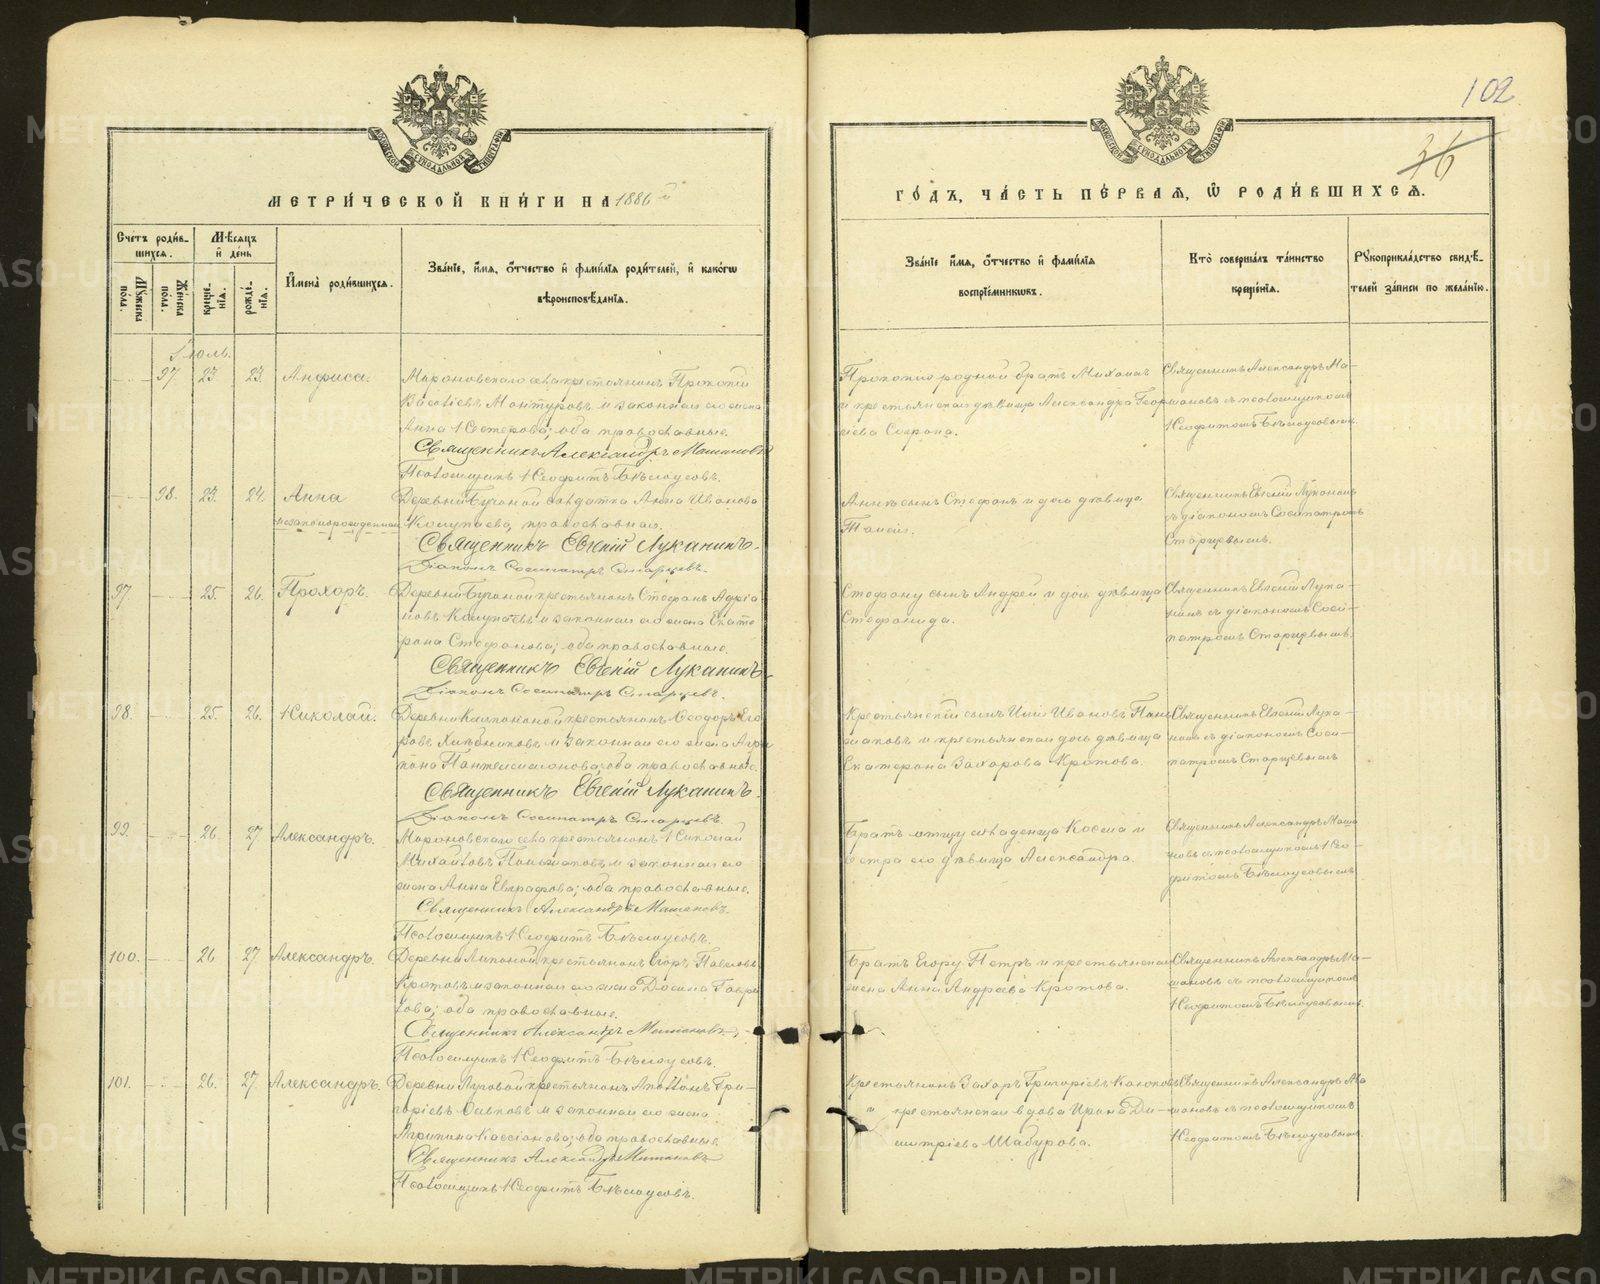 102
36
МЕТРИ́ЧЕСКОЙ КНИ́ГИ НА 1886й
ГО́ДЪ, ЧА́СТЬ ПЕ́РВАЯ, Ѡ РОДИ́ВШИХСЯ.
Сче́тъ роди́в-
шихся.
Мѣ́сяцъ
и҆ де́нь
Му́жеска
пола.
Же́нска
пола.
креще́-
нїя.
рожде́-
нїя.
И҆мена̀ роди́вшихся.
Зва́нїе, и҆́мя, ѻ҆́тчество и҆ фами́лїя роди́телей, и҆ како́гѡ
вѣроисповѣ́данїя.
Зва́нїе и҆́мя, ѻ҆́тчество и҆ фами́лїя
воспрїе́мниковъ.
Кто̀ соверша́лъ та́инство
креще́нїя.
Рꙋкоприкла́дство свидѣ́-
телей за́писи по жела́нїю.
Іюль.
97 23 23. Анфиса.
Мироновскаго села крестьянинъ Прокопій
Васильевъ Мантуровъ и законная его жена
Анна Нестерова; оба православные.
Священникъ Александръ
Псаломщикъ Неофитъ Бѣлоусовъ.
Прокопію родной братъ Михаилъ
и крестьянская дѣвица Александра Геор
гіева
Священникъ Александръ Ма-
шановъ съ псаломщикомъ
Неофитомъ Бѣлоусовымъ.
98. 23. 24. Анна
незаконнорожденная
Деревни Бучиной солдатка Анна Иванова
Колупаева, православная.
Священникъ Евгеній Луканинъ.
Діаконъ Сосипатръ Старцевъ.
Аннѣ сынъ Стефанъ и дочь дѣвица
Священникъ Евгеній Луканинъ
съ діакономъ Сосипатромъ
Старцевымъ.
97 25. 26. Прохоръ.
Деревни Бучиной крестьянинъ Стефанъ Адріа
новъ Колупаевъ и законная его жена Екате
рина Стефанова; оба православные.
Священникъ Евгеній Луканинъ
Діаконъ Сосипатръ Старцевъ.
Стефану сынъ Андрей и дочь дѣвица
Стефанида.
Священникъ Евгеній Лука-
нинъ съ діакономъ Соси-
патромъ Старцевымъ.
98. 25. 26. Николай.
крестьянинъ Ѳеодоръ Его
ровъ Хлѣбниковъ и законная его жена Агри
пина Пантелеимонова; оба православные.
Священникъ Евгеній Луканинъ.
Діаконъ Сосипатръ Старцевъ.
Крестьянскій сынъ Ивановъ
и крестьянская дочь дѣвица
Екатерина Захарова Кротова.
Священникъ Евгеній Лука-
нинъ съ діакономъ Соси-
патромъ Старцевымъ
99. 26. 27 Александръ.
Мироновскаго села крестьянинъ Николай
Михайловъ и законная его
жена Анна Евграфова; оба православные.
Священникъ Александръ Машановъ.
Псаломщикъ Неофитъ Бѣлоусовъ.
Братъ отцу младенца Косма и
сестра его дѣвица Александра.
Священникъ Александръ Маша
новъ съ псаломщикомъ Нео-
фитомъ Бѣлоусовымъ
100. 26 27 Александръ.
Деревни Липиной крестьянинъ Егоръ Павловъ
Кротовъ и законная его жена Гаври
лова; оба православные.
Священникъ Александръ Машановъ
Псаломщикъ Неофитъ Бѣлоусовъ.
Братъ Егору Петръ и крестьянская
жена Анна Андреева Кротова.
Священникъ Александръ Ма-
шановъ съ псаломщикомъ
Неофитомъ Бѣлоусовымъ.
101. 26. 27. Александръ.
Деревни Луговой крестьянинъ Гри-
горіевъ и законная его жена
Агрипина Кассіанова; оба православные.
Священникъ Александръ Машановъ
Псаломщикъ Неофитъ Бѣлоусовъ.
Крестьянинъ Захаръ Григоріевъ
и крестьянская вдова Ирина Ди-
митріева Шабурова.
Священникъ Александръ Ма
шановъ съ псаломщикомъ
Неофитомъ Бѣлоусовымъ
METRIKI.GASO-URAL.RU